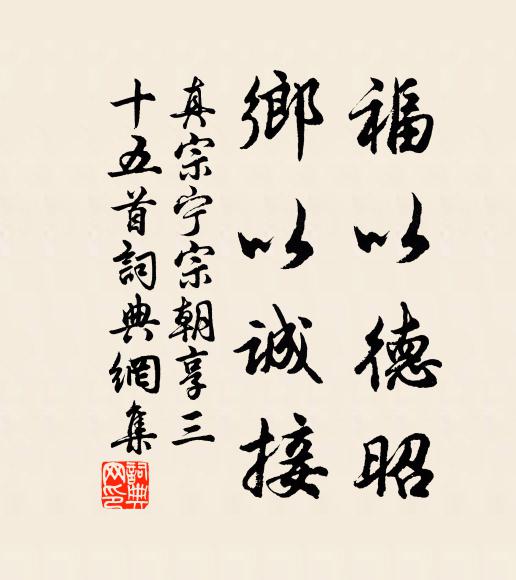 福以德昭
鄉以誠接
真宗宁宗朝享三
十五首詞典網集
詞典网印